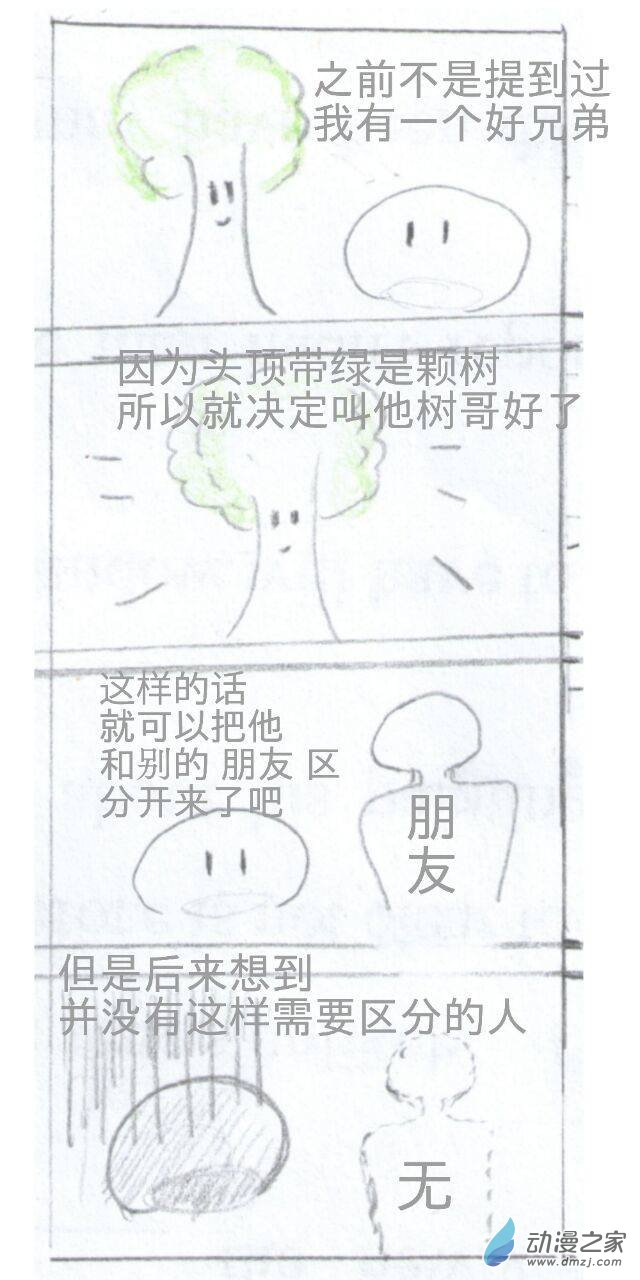 之前不是提到过
我有一个好兄弟
因为头顶带绿是颗树
所以就决定叫他树哥好了
这样的话
就可以把他
和别的 朋友 区
分开来了吧
朋
友
但是后来想到
并没有这样需要区分的人
无
动漫之家
www.dmzj.com